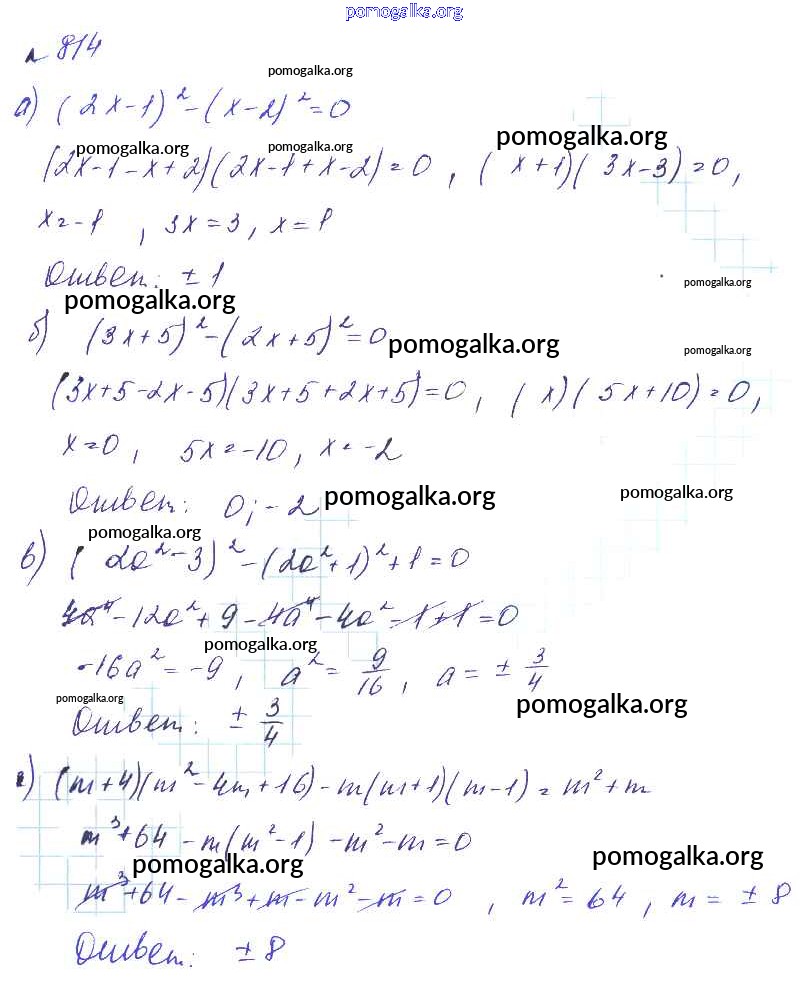 pomogalka.org
№ 814
pomogalka.org
а) (2x-1)² - (x-2)² = 0
pomogalka.org pomogalka.org pomogalka.org
(2x-1-x+2)(2x-1+x-2) = 0, (x+1)(3x-3) = 0,
x = -1, 3x = 3, x = 1
Ответ: ± 1
pomogalka.org pomogalka.org
б) (3x+5)² - (2x+5)² = 0
pomogalka.org pomogalka.org
(3x+5-2x-5)(3x+5+2x+5) = 0, (x)(5x+10) = 0,
x = 0, 5x = -10, x = -2
Ответ: 0; -2
pomogalka.org pomogalka.org
pomogalka.org
в) (2a²-3)² - (2a²+1)² + 1 = 0
4a⁴ - 12a² + 9 - 4a⁴ - 4a² - 1 + 1 = 0
pomogalka.org
-16a² = -9, a² = 9/16, a = ± 3/4
pomogalka.org pomogalka.org
Ответ: ± 3/4
г) (m+4)(m²-4m+16) - m(m+1)(m-1) = m² + m
m³+64 - m(m²-1) - m² - m = 0
pomogalka.org pomogalka.org
m³+64 - m³ + m - m² - m = 0, m² = 64, m = ± 8
Ответ: ± 8